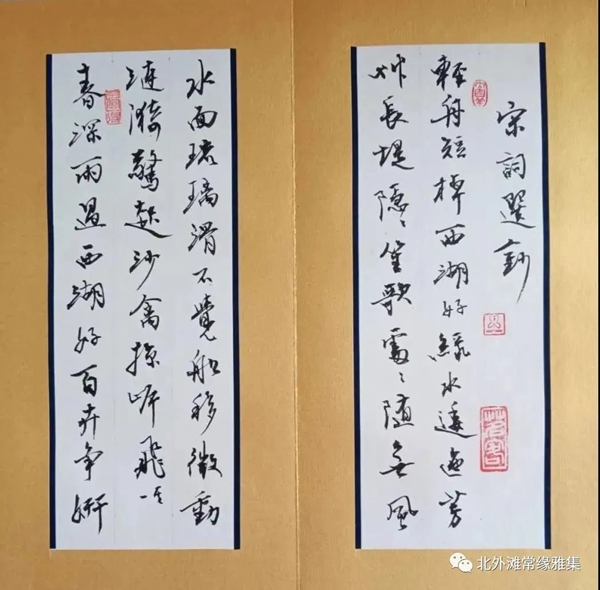 宋詞選鈔
輕舟短棹西湖好綠水逶迤芳
艸長堤隱〻笙歌處〻隨無風
水面琉璃滑不覺船移微動
漣漪驚起沙禽掠岸飛
春深雨過西湖好百卉争妍
北外滩常缘雅集